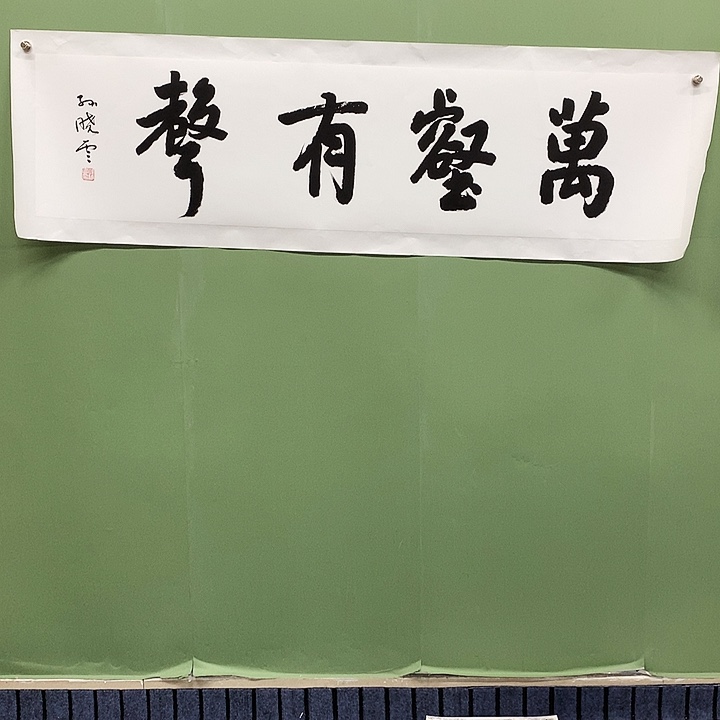 萬壑有聲
孙晓云